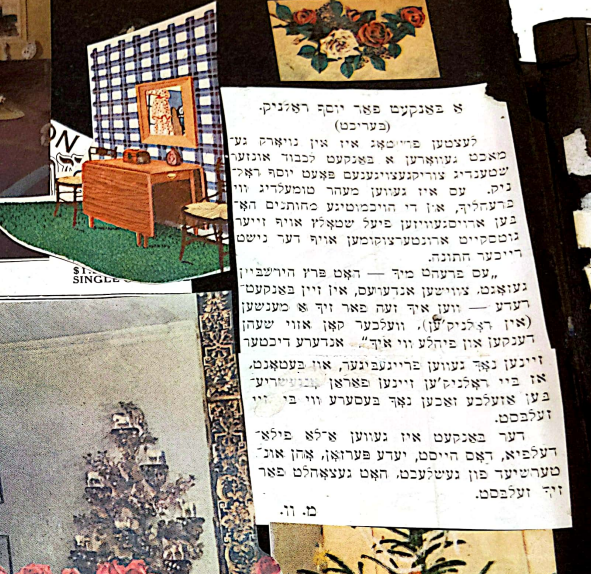 ON
$1.
SINGLE
א באַנקעט פאַר יוסף ראָלניק.
(בעריכט)
לעצטען פרייטאָג איז אין נויאָרק גע־
מאכט געוואָרען א באַנקעט לכבוד אונזער
שטענדיג צוריקגעצויגענעם פּאָעט יוסף ראָל־
ניק. עס איז געווען מעהר טומעלדיג ווי
פרעהליך, און די חויבמוטיגע מחותנים האָ־
בען ארויסגעוויזען פיעל שטאָלץ אויף זייער
גוטסקייט ארונטערצוקומען אויף דער נישט
רייכער חתונה.
„עס פרעהט מיך — האָט פּרץ הירשביין
געזאָגט, צווישען אנדערעם, אין זיין באַנקעט־
רעדע — ווען איך זעה פאַר זיך א מענשען
(אין ראָלניק'ען), וועלכער קאָן אזוי שעהן
דענקען און פיהלע ווי איך“. אנדערע דיכטער
זיינען נאָך געווען פריינעביגער, און בעטאָנט,
אז ביי ראָלניק'ען זיינען פאַראן
בען אזעלכע זאכען נאָך בעסערע ווי ביי זיי
זעלבסט.
דער באַנקעט איז געווען א־לא פילא־
דעלפיא, דאָס הייסט, יעדע פּערזאָן, אָהן אונ־
טערשיעד פון געשלעכט, האָט געצאָהלט פאַר
זיך זעלבסט.
מ. וו.